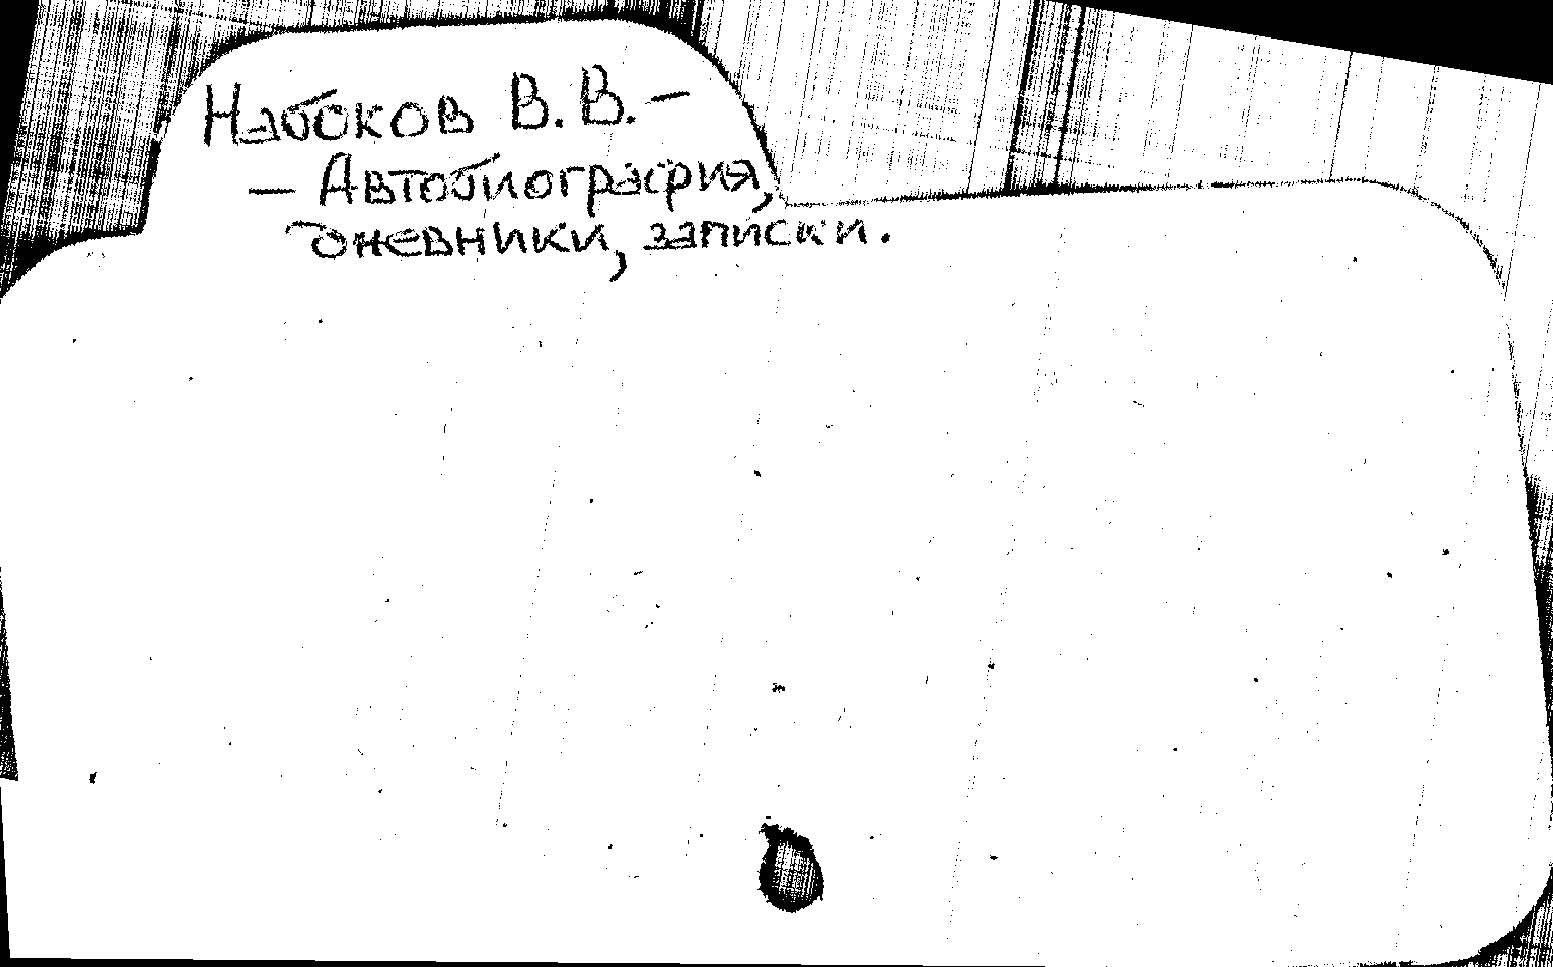 Набоков В.В. –
– Автобиография,
дневники, записки.